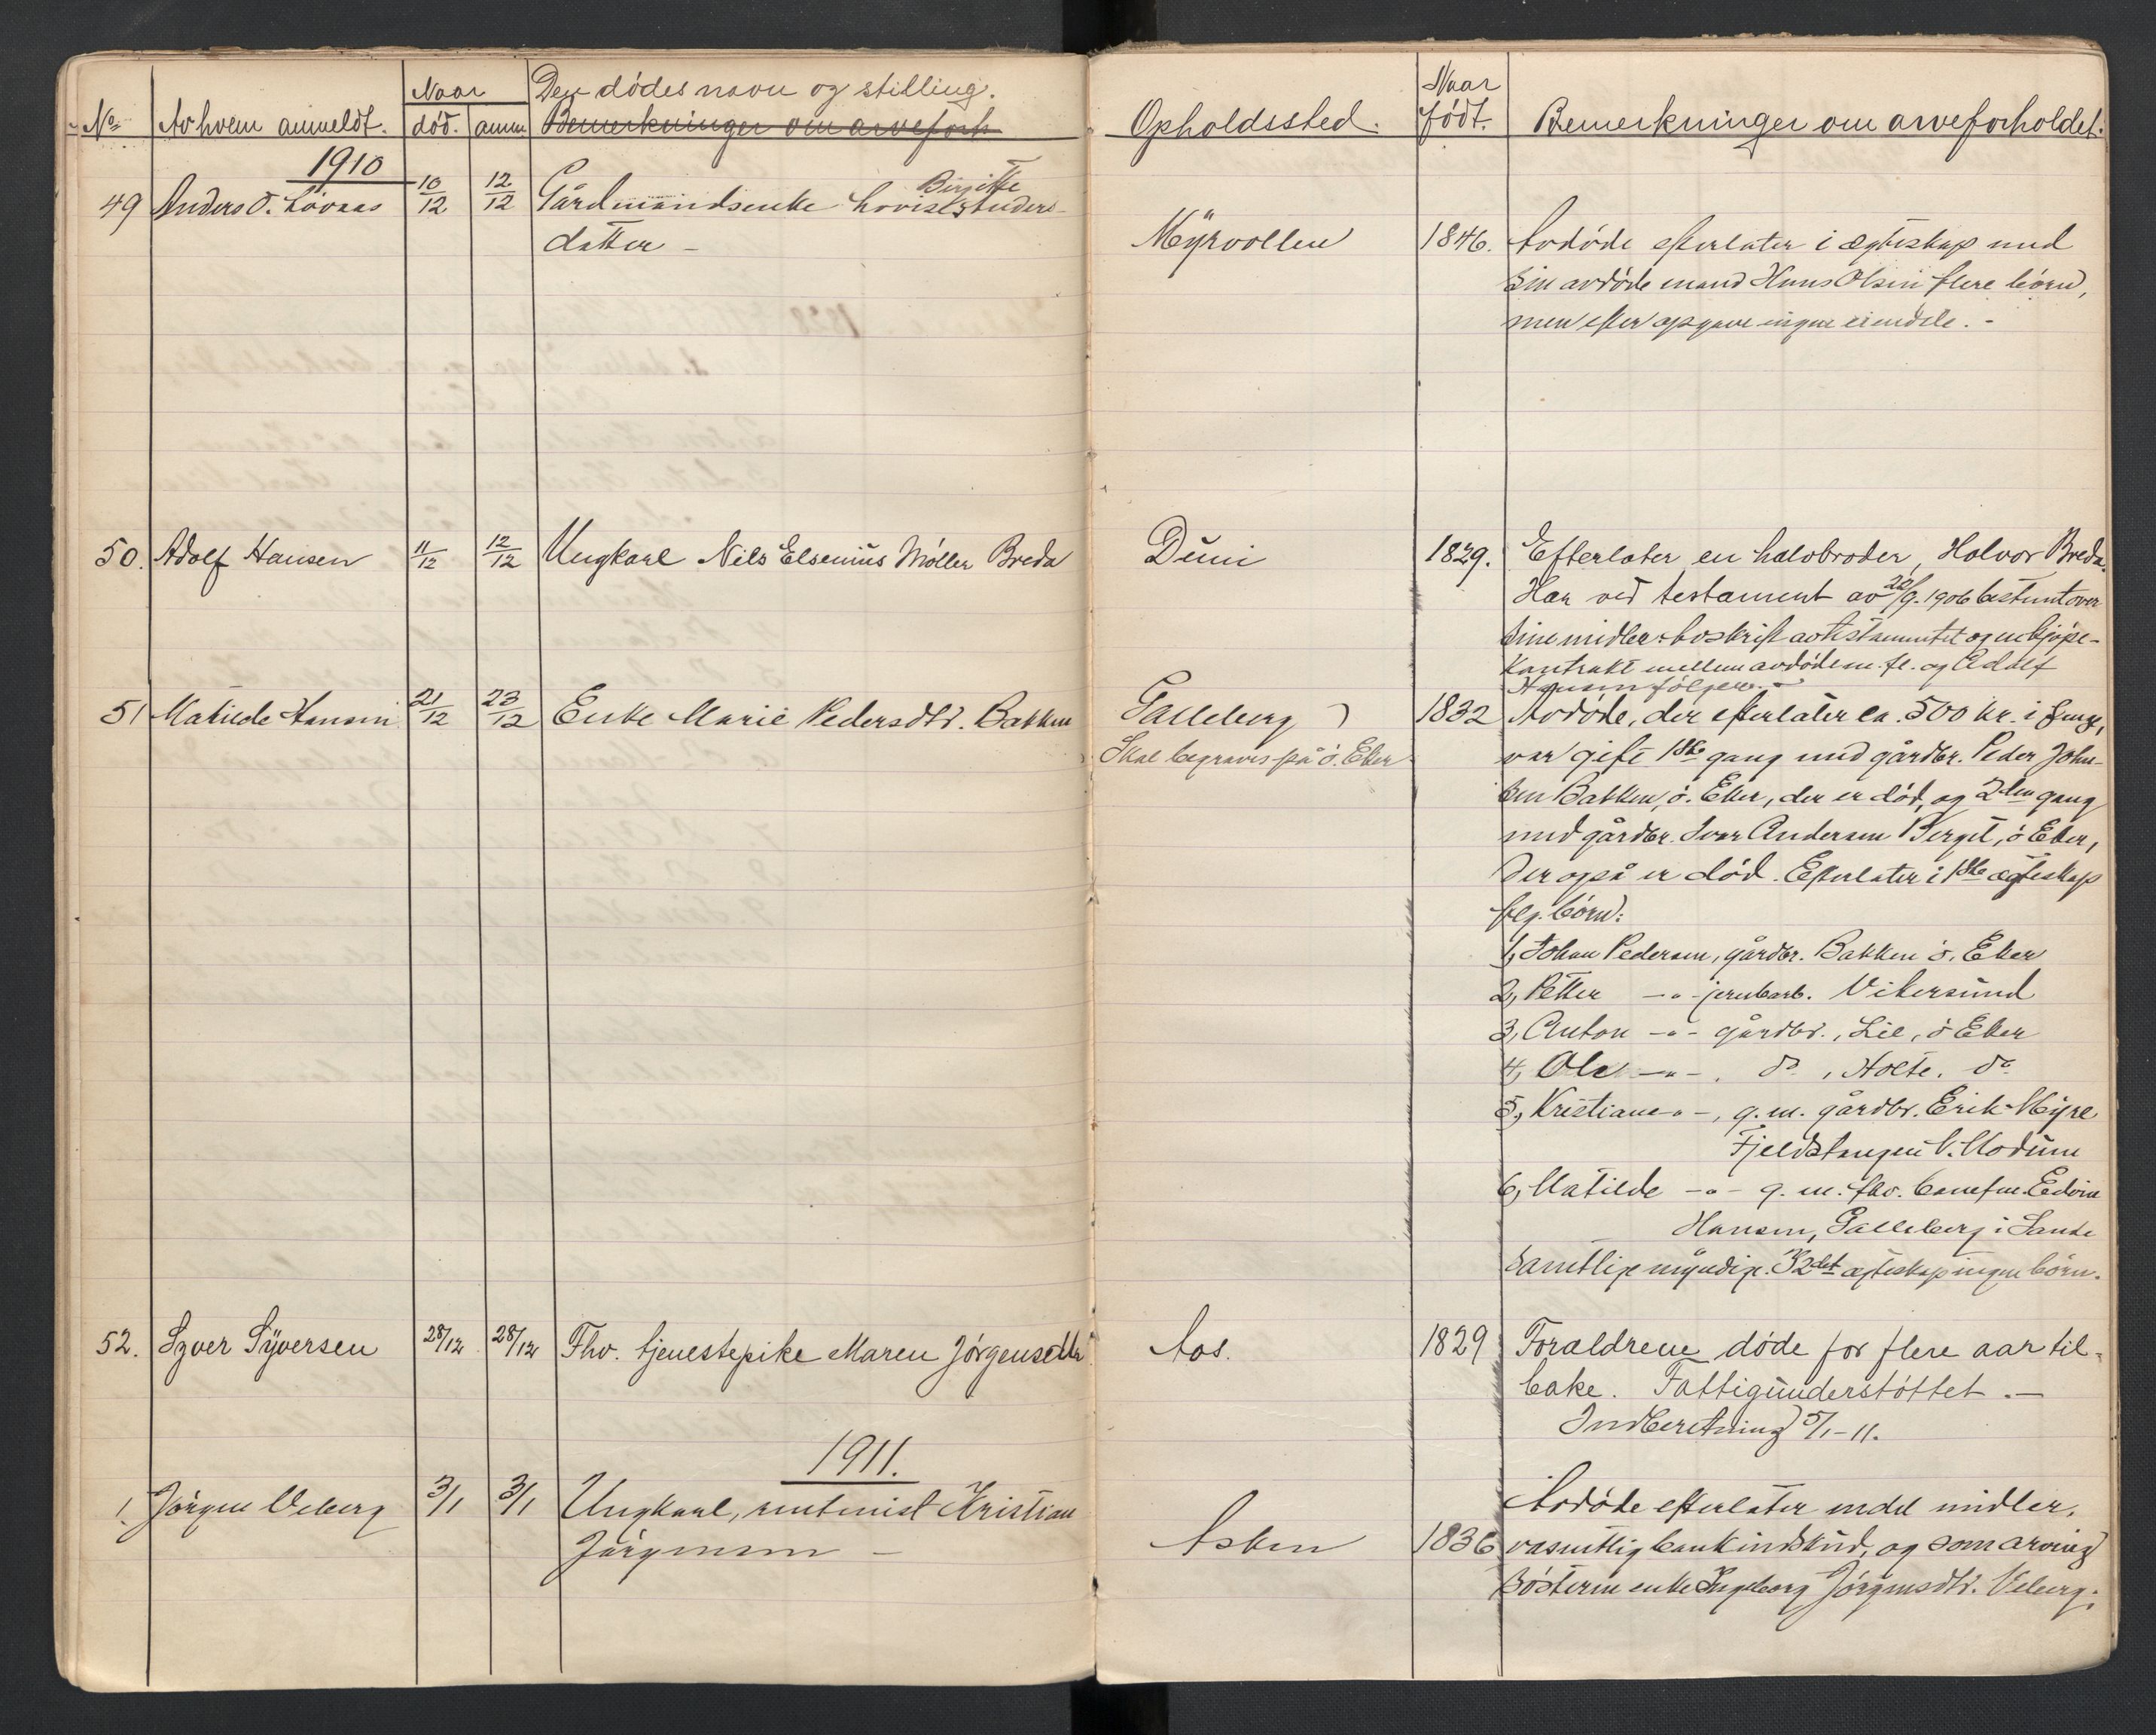 Naar
Den dødes navn og stilling.
No. Av hvem anmeldt. død. anm. Bemerkninger om arveforh
1910
49 Anders O. Løvaas 10/12 12/12 Gårdmandsenke Lovise Birgitte Anders-
datter –
50. Adolf Hansen 11/12 12/12 Ungkarl Nils Elsenius Møller Breda
51 Matilde Hansen 21/12 23/12 Enke Marie Pedersdtr. Bakken
52. Syver Syversen 28/12 28/12 Fhv. tjenestepike Maren Jörgensdtr
1911.
1. Jörgen Veberg 3/1 3/1 Ungkarl, rentenist Kristian
Jörgensen –
Naar
Opholdssted. født. Bemerkninger om arveforholdet.
Myrvollen 1846. Avdøde efterlater i ægteskap med
sin avdøde mand Hans Olsen flere børn,
men efter opgave ingen eiendele. –
Duni 1829. Efterlater en halvbroder, Halvor Breda.
Har ved testament av 20/9. 1906 bestemt over
sine midler. Avskrift av testamentet og en kjøpe-
kontrakt mellem avdøde m. fl. og Adolf
Hansen følger. –
Galleberg 1832 Avdøde, der efterlater ca. 500 kr. i penge,
Skal begraves på ö. Eker var gift 1ste gang med gårdbr. Peder John-
sen Bakken, ö. Eker, der er død, og 2den gang
med gårdbr. Ivar Andersen Berget, ö Eker,
der også er död. Efterlater i 1ste ægteskap
flg. börn:
1, Johan Pedersen, gårdbr. Bakken ö. Eker
2, Petter –"– jernbarb. Vikersund
3, Anton –"– gårdbr., Lie, ö Eker
4, Ole –"–, do, Holte. do
5, Kristiane –"–, g. m. gårdbr. Erik Myre
Fjeldstangen V. Modum
6, Matilde –"– g. m. fhv. banefm. Edvin
Hansen, Galleberg i Sande
Samtlige myndige. I 2det ægteskap ingen børn.
Aos. 1829 Forældrene døde for flere aar til-
bake. Fattigunderstöttet. –
Indberetning 5/1-11.
Avdøde efterlater endel midler,
Asken 1836 væsentlig bankindskud, og som arving
søsteren enke Ingeborg Jörgensdtr. Veberg.